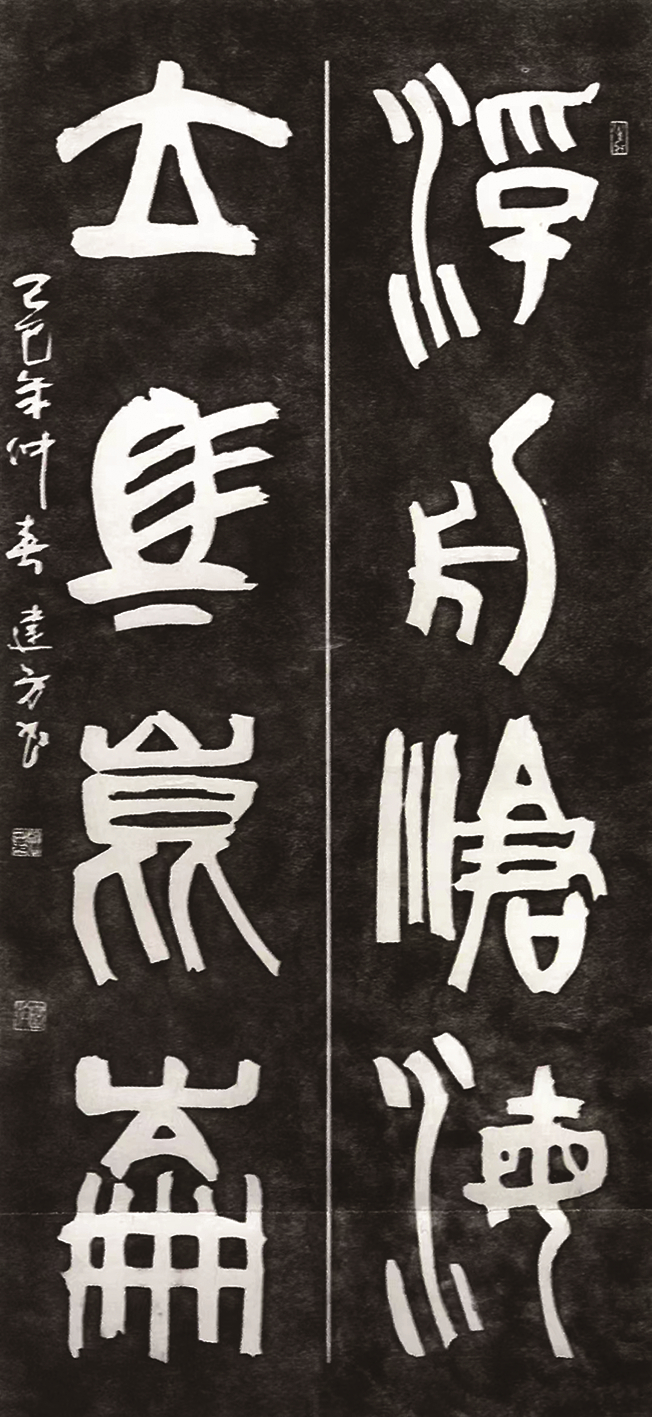 浮舟滄海
立馬崑崙
己巳年仲春建方